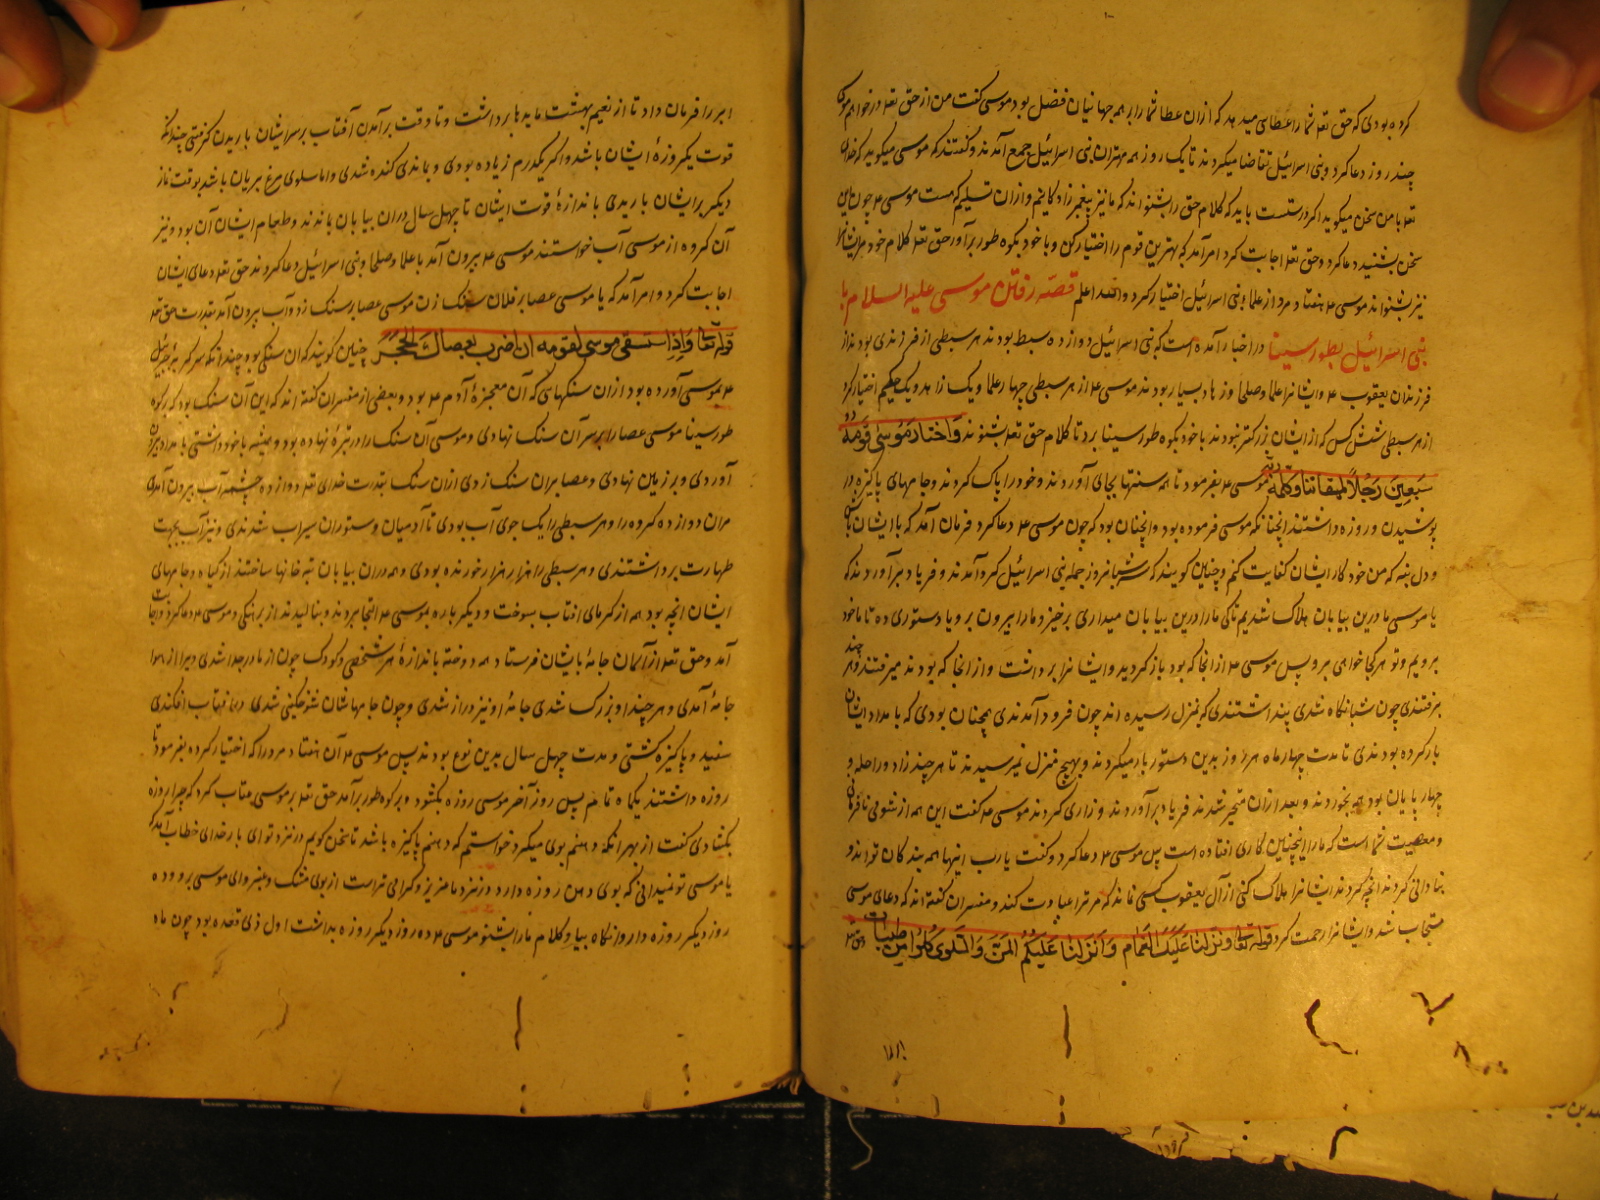 کرده بودی که حق تعلی شما را عطای میدهد که از ان عطا شما را بر همه جهانیان فضل بود موسی گفت من از حق تعلی درخواهم موسی
چند روز دعا کرد و بنی اسرائیل تقاضا میکردند تا یک روز همه مهتران بنی اسرائیل جمع آمدند و گفتند که موسی میگوید که خدای
تعلی با من سخن میگوید اگر درستست باید که کلام حق را بشنواند که ما نیز پیغمبرزادگانیم و ازان تسلیم که هست موسی ع چون این
سخن بشنید دعا کرد و حق تعلی اجابت کرد امر آمد که بهترین قوم را اختیار کن و با خود بکوه طور بر آور حق تعلی کلام خود بر ایشان
نیز بشنواند موسی ع هفتاد مرد از علماء بنی اسرائیل اختیار کرد والله اعلم قصه رفتن موسی علیه السلام با
بنی اسرائیل بطور سینا در اخبار آمده است که بنی اسرائیل دوازده سبط بودند هر سبطی از فرزندی بود از
فرزندان یعقوب ع و ایشانرا علما و صلحا و زهاد بسیار بودند موسی ع از هر سبطی چهار علما و یک زاهد و یک حکیم اختیار کرد
از هر سبطی شش کس که از ایشان بزرکتر نبودند با خود بکوه طور سینا برد تا کلام حق تعلی بشنوند واختار موسی قومه
سبعین رجلا لمیقاتنا وکلمه ربه موسی ع بفرمود تا همه سنتها بجای آوردند و خود را پاک کردند و جامهای پاکیزه در
پوشیدن و روزه داشتند انچنانکه موسی فرموده بود و انچنان بود که چون موسی ع دعا کرد فرمان آمد که با ایشان باش
و دل بنه که من خود کار ایشان کفایت کنم و چنین گویند که شبانروز جمله بنی اسرائیل گرد آمدند و فریاد برآوردند که
یا موسی ما درین بیابان هلاک شدیم تا کی ما را درین بیابان میداری برخیز و ما را بیرون بر و یا دستوری ده تا ما خود
برویم و تو هر کجا خواهی برو پس موسی ع از انجا که بود باز گردید و ایشانرا برداشت و از انجا که بودند میرفتند و هر چند
برفتندی چون شبانگاه شدی پنداشتندی که بمنزل رسیده اند چون فرود آمدندی همچنان بودی که بامداد ایشان
بار کرده بودندی تا مدت چهار ماه هر روز بدین دستور بار میکردند و بهیچ منزل نمیرسیدند تا هر چند زاد و راحله و
چهارپایان بود همه بخوردند و بعد ازان متحیر شدند فریاد برآوردند و زاری کردند موسی ع گفت این همه از شومی نافرمانی
و معصیت شما است که ما را اینچنین کاری افتاده است پس موسی ع دعا کرد و گفت یا رب اینها همه بندگان تو اند و
بنادانی کردند انچه کردند ایشانرا هلاک کنی از آل یعقوب کسی نماند که مر ترا عبادت کند و مفسران گفته اند که دعای موسی
مستجاب شد و ایشانرا رحمت کرد قوله تعالی وظللنا علیکم الغمام وانزلنا علیکم المن والسلوی کلوا من طیبات
ابر را فرمان داد تا از نعیم بهشت مایدها برداشت و تا وقت برآمدن آفتاب بر سر ایشان باریدن گرفتی چندانکه
قوت یکروزهٔ ایشان باشد و اگر یکدرم زیاده بودی و باندی گنده شدی و اما سلوی مرغ بریان باشد بوقت نماز
دیگر بر ایشان باریدی باندازهٔ قوت ایشان تا چهل سال دران بیابان باندند و طعام ایشان آن بود و نیز
آن گروه از موسی آب خواستند موسی ع بیرون آمد با علما و صلحاء بنی اسرائیل دعا کردند حق تعلی دعای ایشان
اجابت کرد و امر آمد که یا موسی عصا بر فلان سنک زن موسی عصا بر سنک زد و آب بیرون آمد بقدرت حق تعلی
قوله تعالی واذ استسقی موسی لقومه ان اضرب بعصاک الحجر چنین گویند که ان سنکی بود چندانکه سر گربه جبرئیل
ع بموسی آورده بود ازان سنکهائی که آن معجزهٔ آدم ع بود و بعضی از مفسران گفته اند که این آن سنک بود که بکوه
طور سینا موسی عصا را بر سر آن سنک نهادی و موسی آن سنک را در توبره نهاده بود و همیشه با خود داشتی بامداد بیرون
آوردی و بر زمین نهادی و عصا بران سنک زدی ازان سنک بقدرت خدای تعلی دوازده چشمه آب بیرون آمدی
مران دوازده گروه را و هر سبطی را یک جوی آب بودی تا آدمیان و ستوران سیراب شدندی و نیز آب بجهت
طهارت برداشتندی و هر سبطی را هزار هزار خورنده بودی و همه دران بیابان تبه خانها ساختند از گیاه و جامهای
ایشان انچه بود همه از گرمای افتاب بسوخت و دیگر باره بموسی ع التجا بردند و بنالیدند از برهنگی و موسی ع دعا کرد و اجابت
آمد و حق تعلی از آسمان جامهٔ بایشان فرستاد همه دوخته باندازهٔ هر شخصی و کودک چون از مادر جدا شدی ویرا از هوا
جامهٔ آمدی و هر چند او بزرک شدی جامهٔ او نیز دراز شدی و چون جامهاشان شوخگین شدی در افتاب افکندی
سفید و پاکیزه گشتی و مدت چهل سال بدین نوع بودند پس موسی ع آن هفتاد مرد را که اختیار کرده بفرمود تا
روزه داشتند یکماه تمام پس روز آخر موسی روزه بگشود و بر کوه طور برآمد حق تعلی بر موسی عتاب کرد که چرا روزه
بگشادی گفت از بهر آنکه دهنم بوی میکرد خواستم که دهنم پاکیزه باشد تا سخن گویم در نزد تو ای بار خدای خطاب آمد که
یا موسی تو نمیدانی که بوی دهن روزه دارد در نزد ما عزیز و گرامی تر است از بوی مشک و عنبر و ای موسی برو و ده
روز دیگر روزه دار وانگاه بیا و کلام ما را بشنو موسی ع ده روز دیگر روزه بداشت اول ذی قعده بود چون ماه